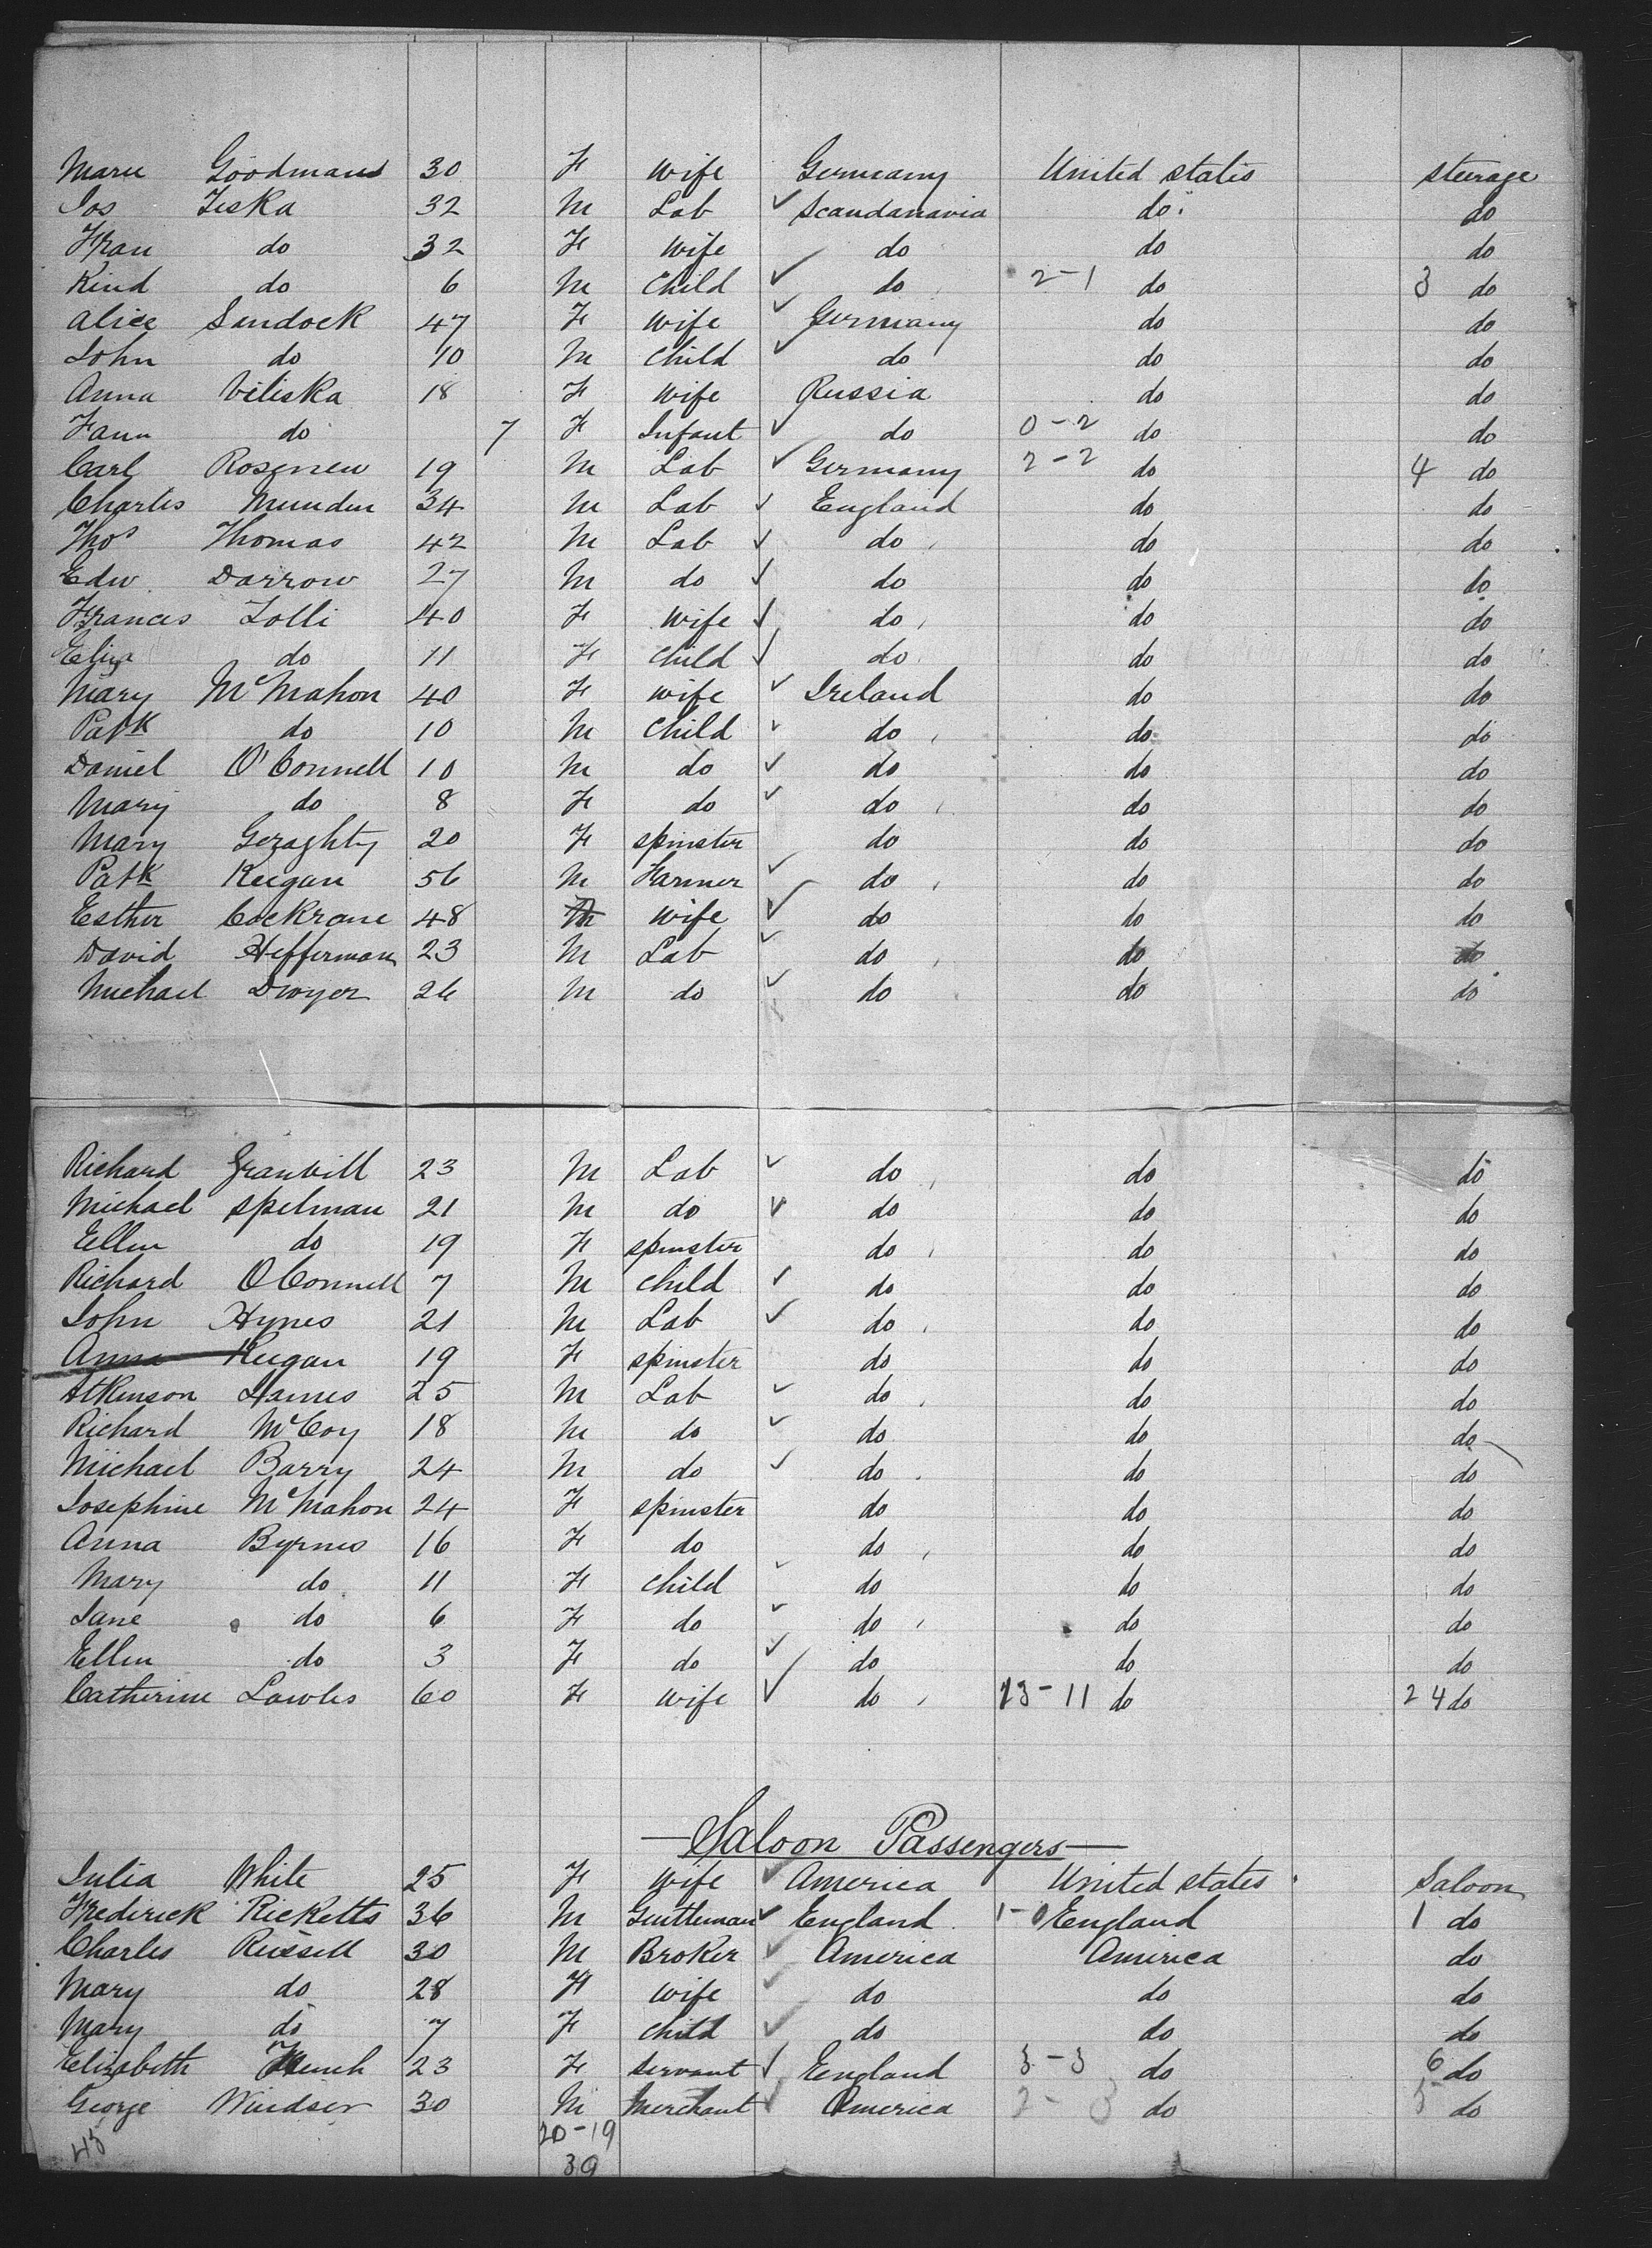 Marie Goodmans 30 F wife Germany United states steerage
Jos Ziska 32 M Lab ✓ Scandanavia do do
Fran do 32 F wife do do do
Kind do 6 M Child ✓ do 2-1 do 3 do
Alice Sindock 47 F wife ✓ Germany do do
John do 10 M child ✓ do do do
Anna Viliska 18 F wife Russia do do
Fann do 7 F Infant ✓ do 0-2 do do
Carl Rosenew 19 M Lab ✓ Germany 2-2 do 4 do
Charles Munden 34 M Lab ✓ England do do
Thos Thomas 42 M Lab ✓ do do do
Edw Darrow 27 M do ✓ do do do
Frances Lolli 40 F wife ✓ do do do
Eliza do 11 F child ✓ do do do
Mary McMahon 40 F wife ✓ Ireland do do
Patk do 10 M Child ✓ do do do
Daniel O'Connell 10 M do ✓ do do do
Mary do 8 F do ✓ do do do
Mary Geraghty 20 F spinster do do do
Patk Keegan 56 M Farmer ✓ do do do
Esther Cockrane 48 wife ✓ do do do
David Hefferman 23 M Lab ✓ do do do
Michael Dwyer 26 M do ✓ do do do
Richard Granvill 23 M Lab ✓ do do do
Michael Spelman 21 M do ✓ do do do
Ellen do 19 F spinster do do do
Richard OConnell 7 M child ✓ do do do
John Hynes 21 M Lab ✓ do do do
Anna Keegan 19 F spinster do do do
Atkinson James 25 M Lab ✓ do do do
Richard McCoy 18 M do ✓ do do do
Michael Barry 24 M do ✓ do do do
Josephine McMahon 24 F spinster do do do
Anna Byrnes 16 F do do do do
Mary do 11 F child ✓ do do do
Jane do 6 F do ✓ do do do
Ellen do 3 F do ✓ do do do
Catherine Lawles 60 F wife ✓ do 13-11 do 24 do
Saloon Passengers
Julia White 25 F wife ✓ America United states Saloon
Frederick Ricketts 36 M Gentleman ✓ England 1-0 England 1 do
Charles Russell 30 M Broker ✓ America America do
Mary do 28 F wife ✓ do do do
Mary do 7 F child ✓ do do do
Elizabeth 23 F servant ✓ England 3-3 do 6 do
George Windser 30 M Merchant ✓ America 2-3 do 5 do
45 20-19
39